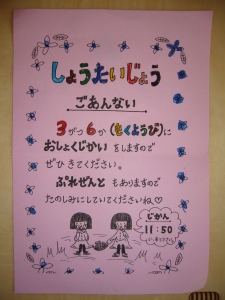 しょうたいじょう
ごあんない
3がつ6か(もくようび)に
おしょくじかいをしますので
ぜひきてください。
ぷれぜんともありますので
たのしみにしていてくださいね♡
じかん
11:50